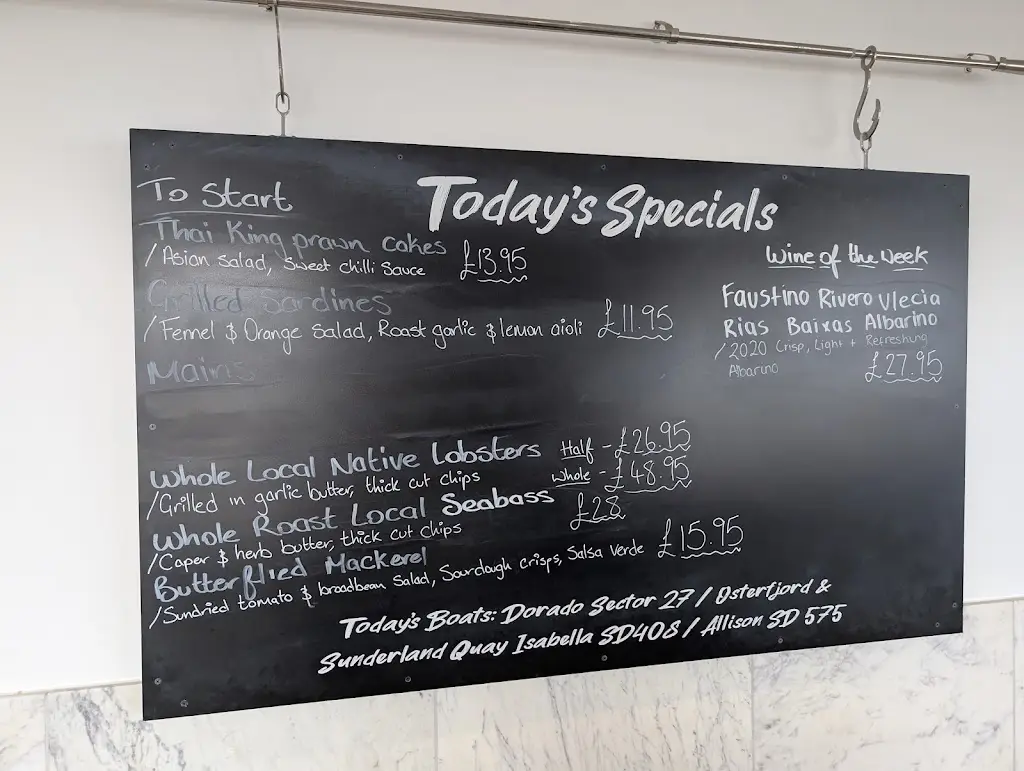 Today's Specials
To Start
Thai King prawn cakes
/Asian Salad, Sweet chilli Sauce £13.95
Grilled Sardines
/Fennel & Orange Salad, Roast garlic & lemon aioli £11.95
Mains
Whole Local Native Lobsters Half - £26.95
/Grilled in garlic butter, thick cut chips Whole - £48.95
Whole Roast Local Seabass £28
/Caper & herb butter, thick cut chips
Butterflied Mackerel
/Sundried tomato & broadbean Salad, Sourdough crisps, Salsa Verde £15.95
Wine of the Week
Faustino Rivero Vlecia
Rias Baixas Albarino
/2020 Crisp, Light + Refreshing
Albarino £27.95
Today's Boats: Dorado Sector 27 / Osterfjord &
Sunderland Quay Isabella SD408 / Allison SD 575